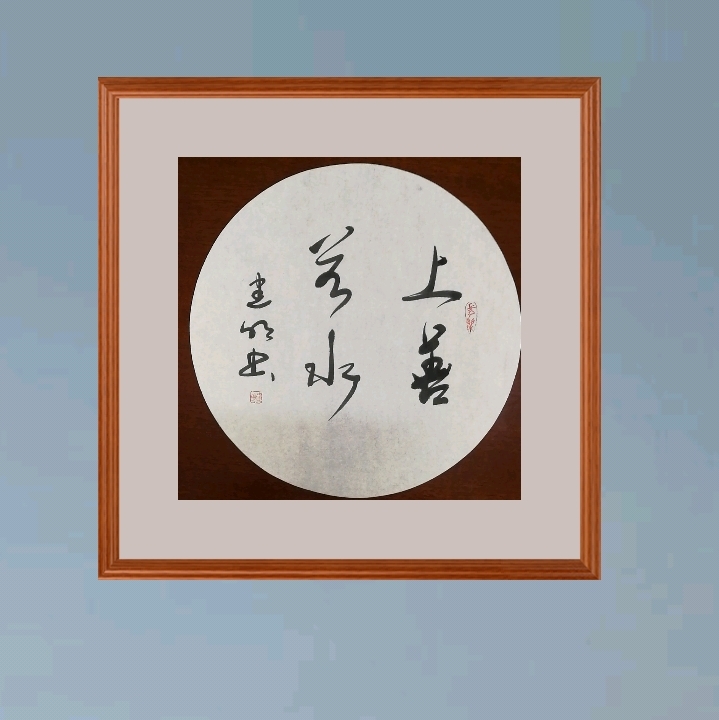 上善
若水
建明书